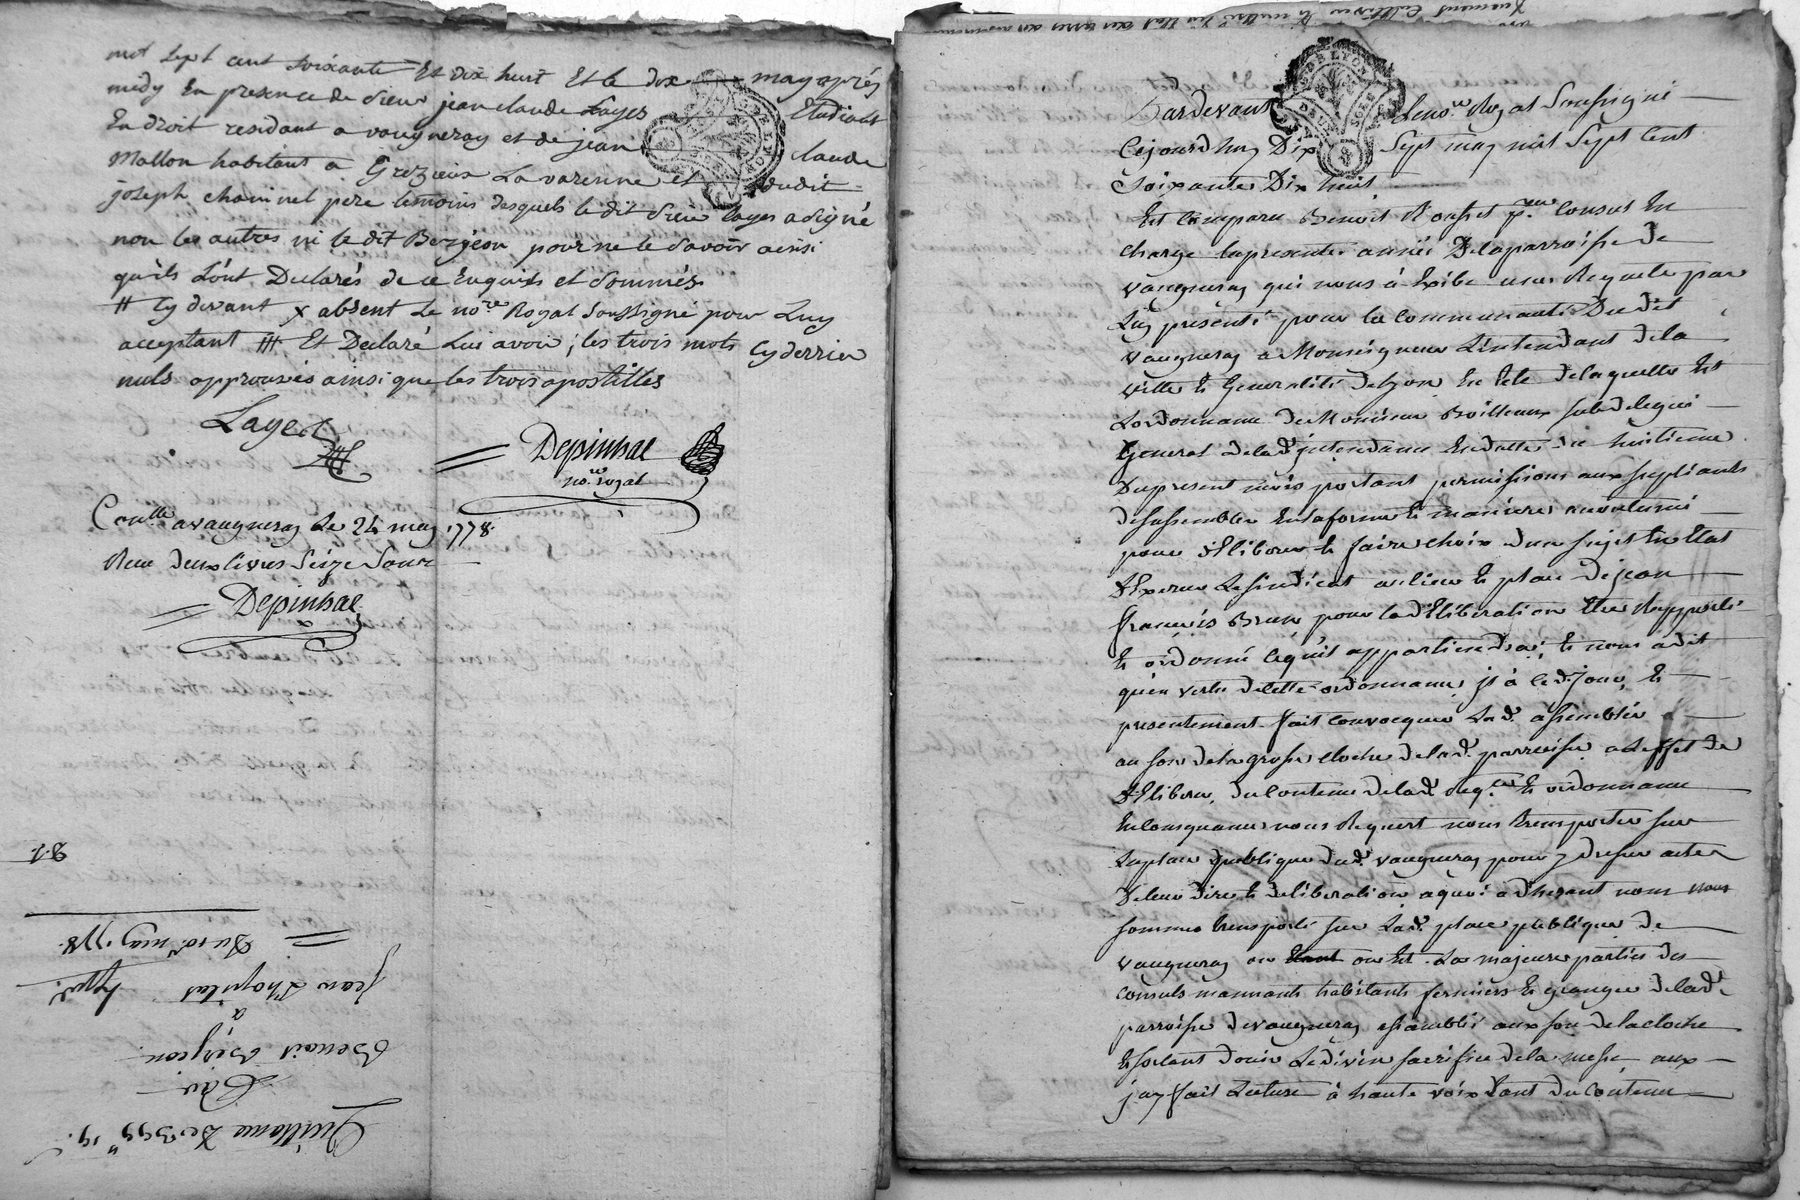 mil sept cent soixante Et dix huit Et le dix may après
midy En presence de Sieur jean claude Layes Etudiant
En droit residant a vaugneray et de jean claude
Mallon habitant a Grezieux La varenne et dudit
joseph chaminel pere temoins desquels le dit Sieur Layes a signé
non les autres ni le dit Berjeon pour ne le savoir ainsi
qu'ils L'ont Declarés de ce Enquis et sommés
# Cy devant x absent Le no.re Royal soussigné pour Luy
acceptant ### Et Declaré Lui avoir ; les trois mots Cy derrier
nuls approuvés ainsi que les trois apostilles
Layes
Depinhac
no.re royal
Con.llé a vaugneray Le 24 may 1778.
Reçu deux livres seize sous
Depinhac
Pardevant Le no.re Royal Soussigné
Cejourdhuy Dix Sept may mil Sept Cent
Soixante Dix huit
Est Comparu Benoit Rouset p.er Consul En
charge La presente année De la parroisse de
vaugneray qui nous à Exibé une Requete par
Luy presenté pour la communauté Du dit
vaugneray a Monseigneur L'intendant de la
ville Et Generalité de Lyon En tete de laquelle Est
L'ordonnance de Monsieur Boilleux subdelegué
General de la d. intendance En datte du huitieme
Du present mois portant permissions aux supliants
de sassembler En la forme Et maniere accoutumé
pour délibérer Et faire choix d'un sujet En Etat
d'Exercer Le sindicat au lieu Et place de jean
françois Brun pour la déliberation Etre Rapporté
Et ordonné ce qu'il appartiendra ; Et nous a dit
qu'en vertu de cette ordonnance il à ce d. jour, Et
presentement fait convocquer La d. assemblée
au son de la grosse cloche de la d. parroisse a Leffet de
délibérer du contenu de la d. req.te Et ordonnance
En Consequence nous Requert nous transporter sur
La place publique du d. vaugneray pour y dresser acte
De leur dire Et deliberation a quoi adherant nous nous
sommes transporté sur La d. place publique de
vaugneray ou Etant ou Est La majeure partie des
consuls mannants habitants fermiers Et grangers de la d.
parroisse de vaugneray assemblés aux son de la cloche
Et sortant d'ouir Le divin sacrifice de la messe aux
j'ay fait Lecture à haute voix tant du contenu
Du 10 may 1778.
jean L'hopital
a
Benoit Berjeon